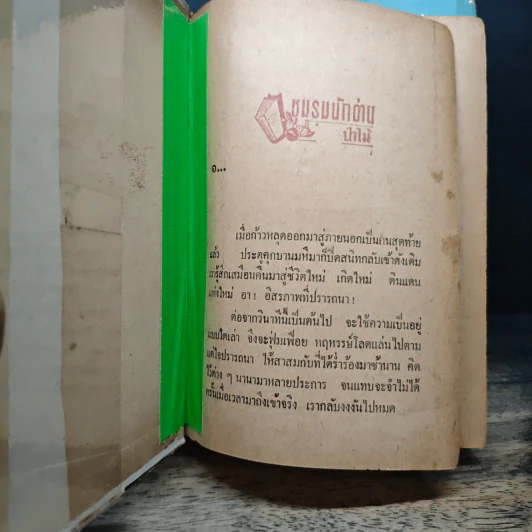 ชุมรมนักอ่าน
ป่าไม้
๑...
เมื่อก้าวหลุดออกมาสู่ภายนอกเป็นคนสุดท้าย
แล้ว ประตูคุกบานมหึมาก็ปิดสนิทกลับเข้าดังเดิม
เรารู้สึกเสมือนคืนมาสู่ชีวิตใหม่ เกิดใหม่ ดินแดน
แห่งใหม่ อา! อิสรภาพที่ปรารถนา!
ต่อจากวินาทีนี้เป็นต้นไป จะใช้ความเป็นอยู่
แบบใดเล่า จึงจะฟุ่มเฟือย หฤหรรษ์โลดแล่นไปตาม
แต่ใจปรารถนา ให้สาสมกับที่ได้ร่ำร้องมาช้านาน คิด
ไว้ต่าง ๆ นานามาหลายประการ จนแทบจะจำไม่ได้
ครั้นเมื่อเวลามาถึงเข้าจริง เรากลับงงงันไปหมด